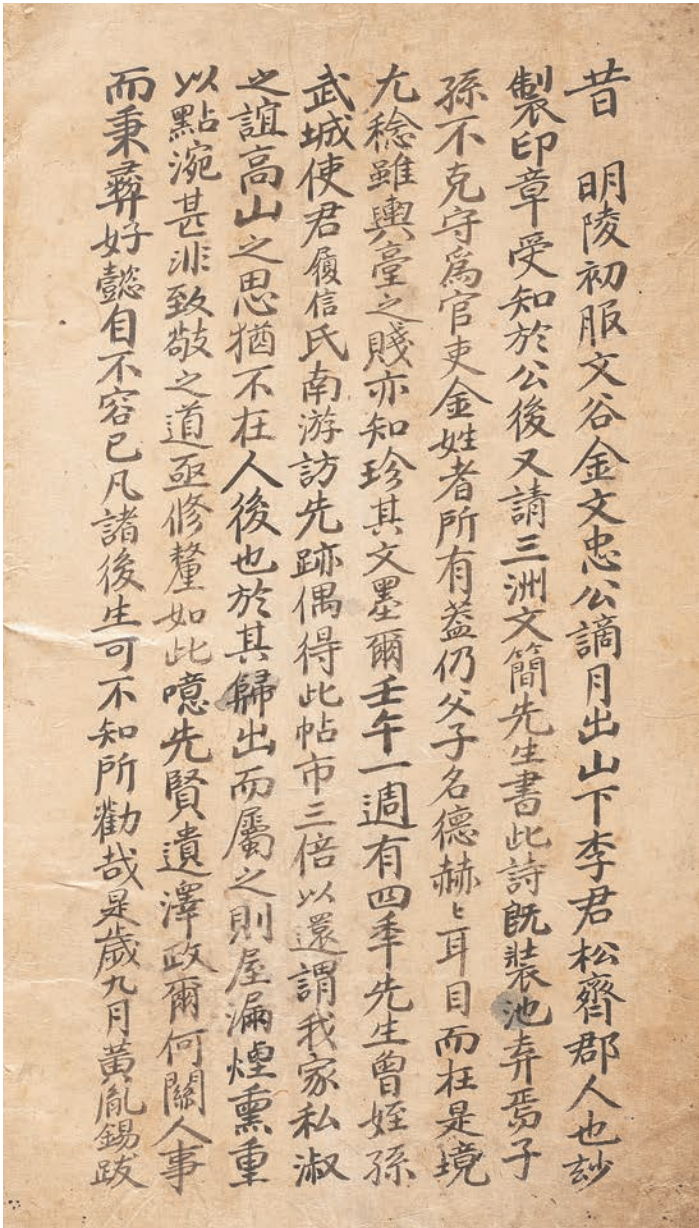 昔 明陵初服文谷金文忠公謫月出山下李君松齊郡人也玅
製印章受知於公後又請三洲文簡先生書此詩旣裝池弆焉子
孫不克守爲官吏金姓者所有葢仍父子名德赫〻耳目而在是境
尤稔雖輿臺之賤亦知珍其文墨爾壬午一週有四年先生曾姪孫
武城使君履信氏南游訪先跡偶得此帖市三倍以還謂我家私淑
之誼高山之思猶不在人後也於其歸出而屬之則屋漏煙熏重
以點涴甚非致敬之道亟修釐如此噫先賢遺澤政爾何關人事
而秉彛好懿自不容已凡諸後生可不知所勸哉是歲九月黃胤錫跋